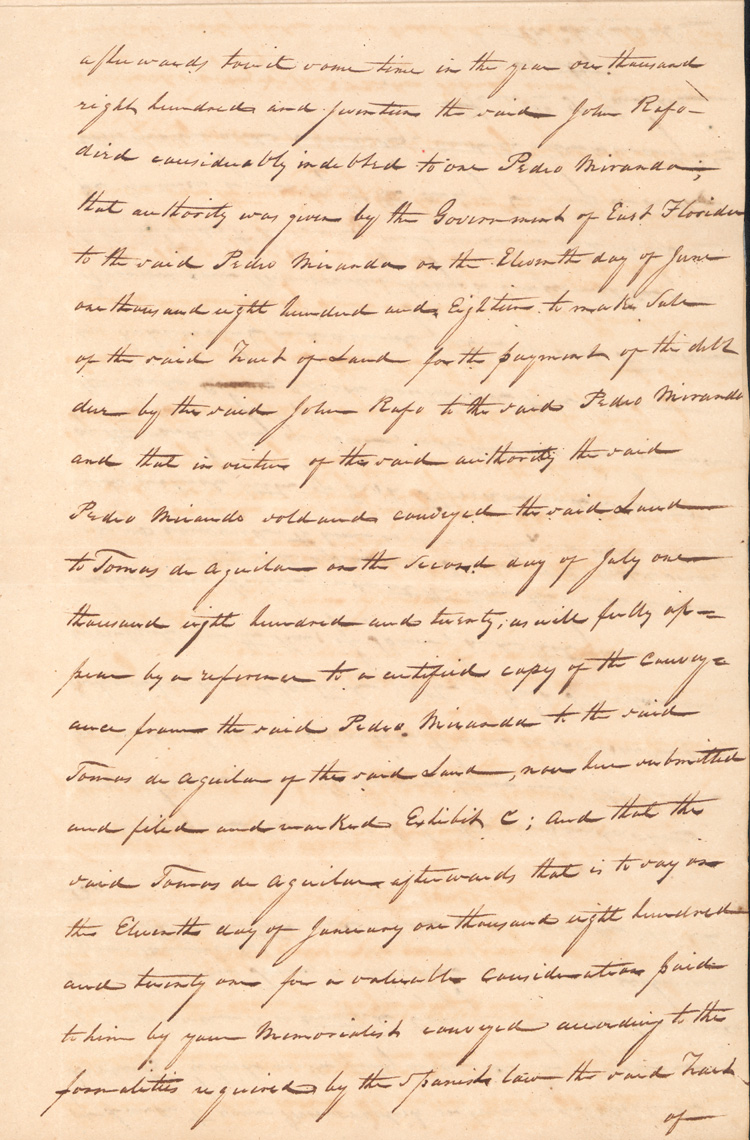 afterwards towit some time in the year one thousand
eight hundred and seventeen the said John Rafo
died considerably indebted to one Pedro Miranda;
that authority was given by the Government of East Florida
to the said Pedro Miranda on the Eleventh day of June
one thousand eight hundred and Eighteen to make Sale
of the said Tract of Land for the payment of the debt
due by the said John Rafo to the said Pedro Miranda
and that in virtue of the said authority the said
Pedro Miranda sold and conveyed the said Land
to Tomas de Aguilar on the Second day of July one
thousand eight hundred and twenty, as will fully ap=
pear by a reference to a certified copy of the Convey=
ance from the said Pedro Miranda to the said
Tomas de Aguilar of the said Land, now here submitted
and filed and marked Exhibit C; And that the
said Tomas de Aguilar afterwards that is to say on
the Eleventh day of January one thousand eight hundred
and twenty one for a valuable consideration paid
to him by your Memorialist conveyed according to the
formalities required by the Spanish law the said Tract
of